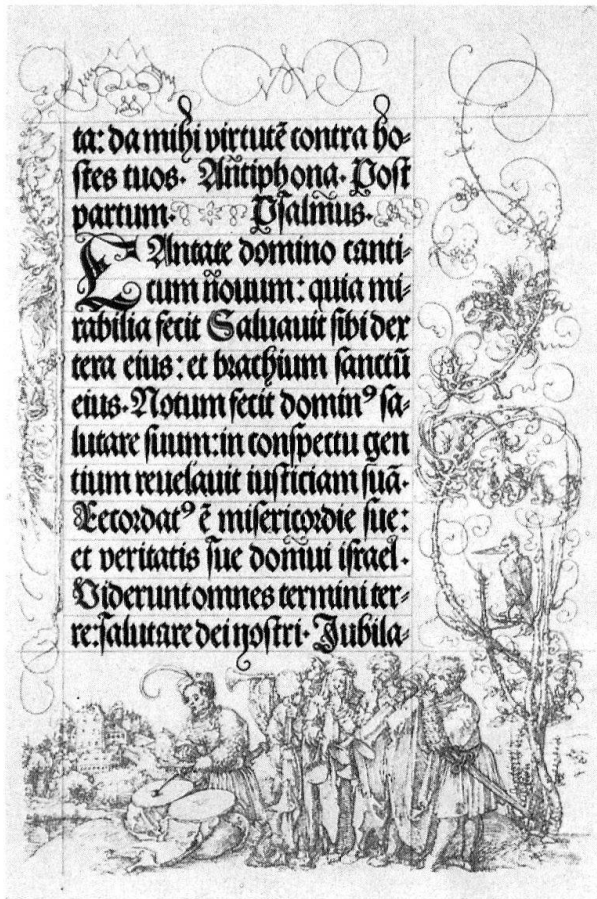 ta: da mihi virtutē contra ho⸗
ſtes tuos. Añtiphona. Poſt
partum. Pſalm̃us.
CAntate domino canti⸗
cum ñouum: quia mi⸗
rabilia fecit Saluauit ſibi dex
tera eius: et brachium ſanctū
eius. Notum fecit dominꝰ ſa⸗
lutare ſuum: in conſpectu gen
tium reuelauit iuſticiam ſuā.
Recordatꝰ ē miſericordie ſue:
et veritatis ſue domui iſrael.
Viderunt omnes termini ter⸗
re: ſalutare dei noſtri. Jubila⸗